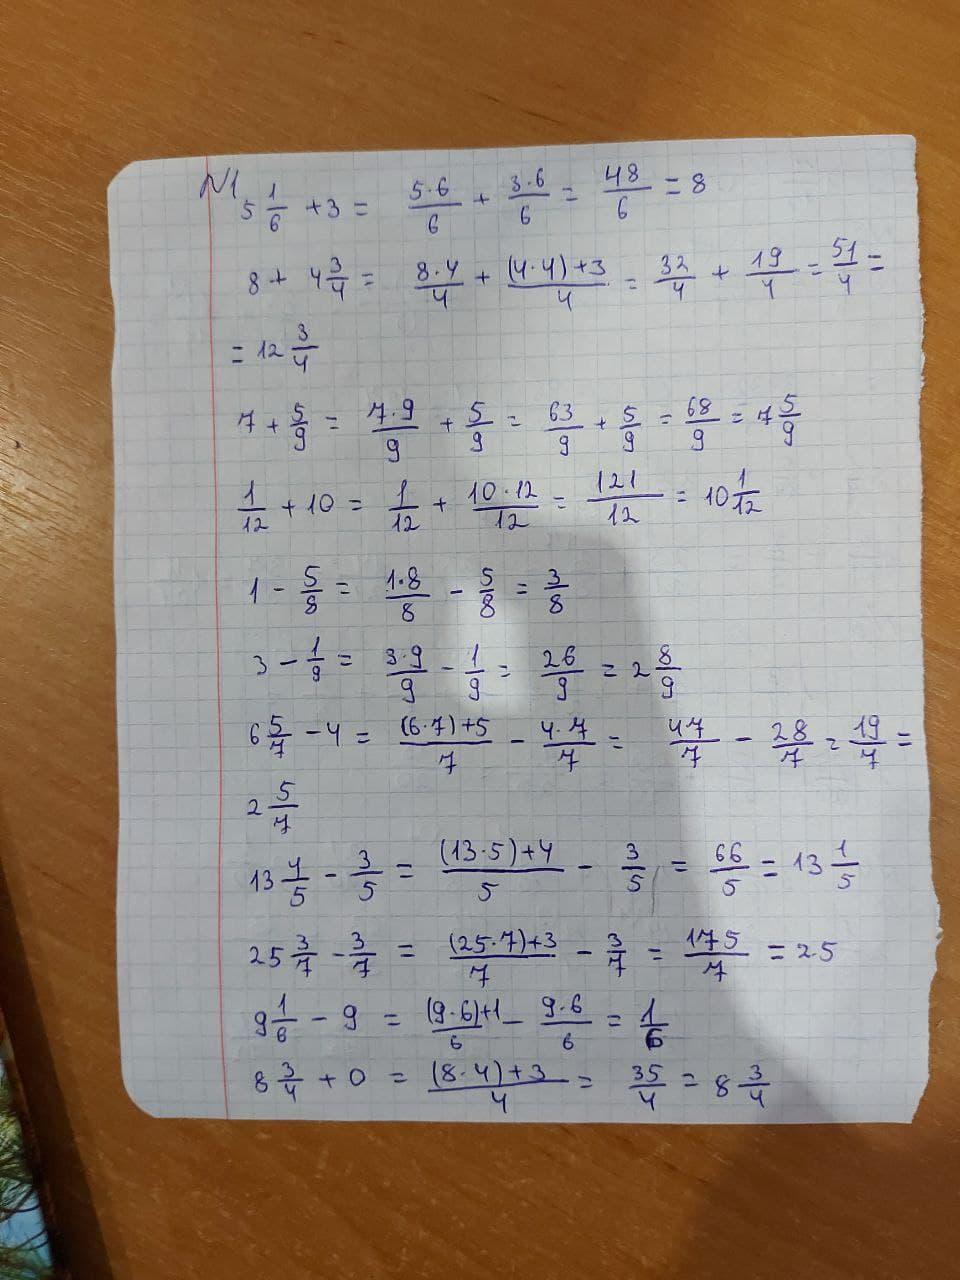 N1 5 1/6 + 3 = 5·6/6 + 3·6/6 = 48/6 = 8
8 + 4 3/4 = 8·4/4 + (4·4)+3/4 = 32/4 + 19/4 = 51/4 =
= 12 3/4
7 + 5/9 = 7·9/9 + 5/9 = 63/9 + 5/9 = 68/9 = 7 5/9
1/12 + 10 = 1/12 + 10·12/12 = 121/12 = 10 1/12
1 - 5/8 = 1·8/8 - 5/8 = 3/8
3 - 1/9 = 3·9/9 - 1/9 = 26/9 = 2 8/9
6 5/7 - 4 = (6·7)+5/7 - 4·7/7 = 47/7 - 28/7 = 19/7 =
2 5/7
13 4/5 - 3/5 = (13·5)+4/5 - 3/5 = 66/5 = 13 1/5
25 3/7 - 3/7 = (25·7)+3/7 - 3/7 = 175/7 = 25
9 1/6 - 9 = (9·6)+1/6 - 9·6/6 = 1/6
8 3/4 + 0 = (8·4)+3/4 = 35/4 = 8 3/4